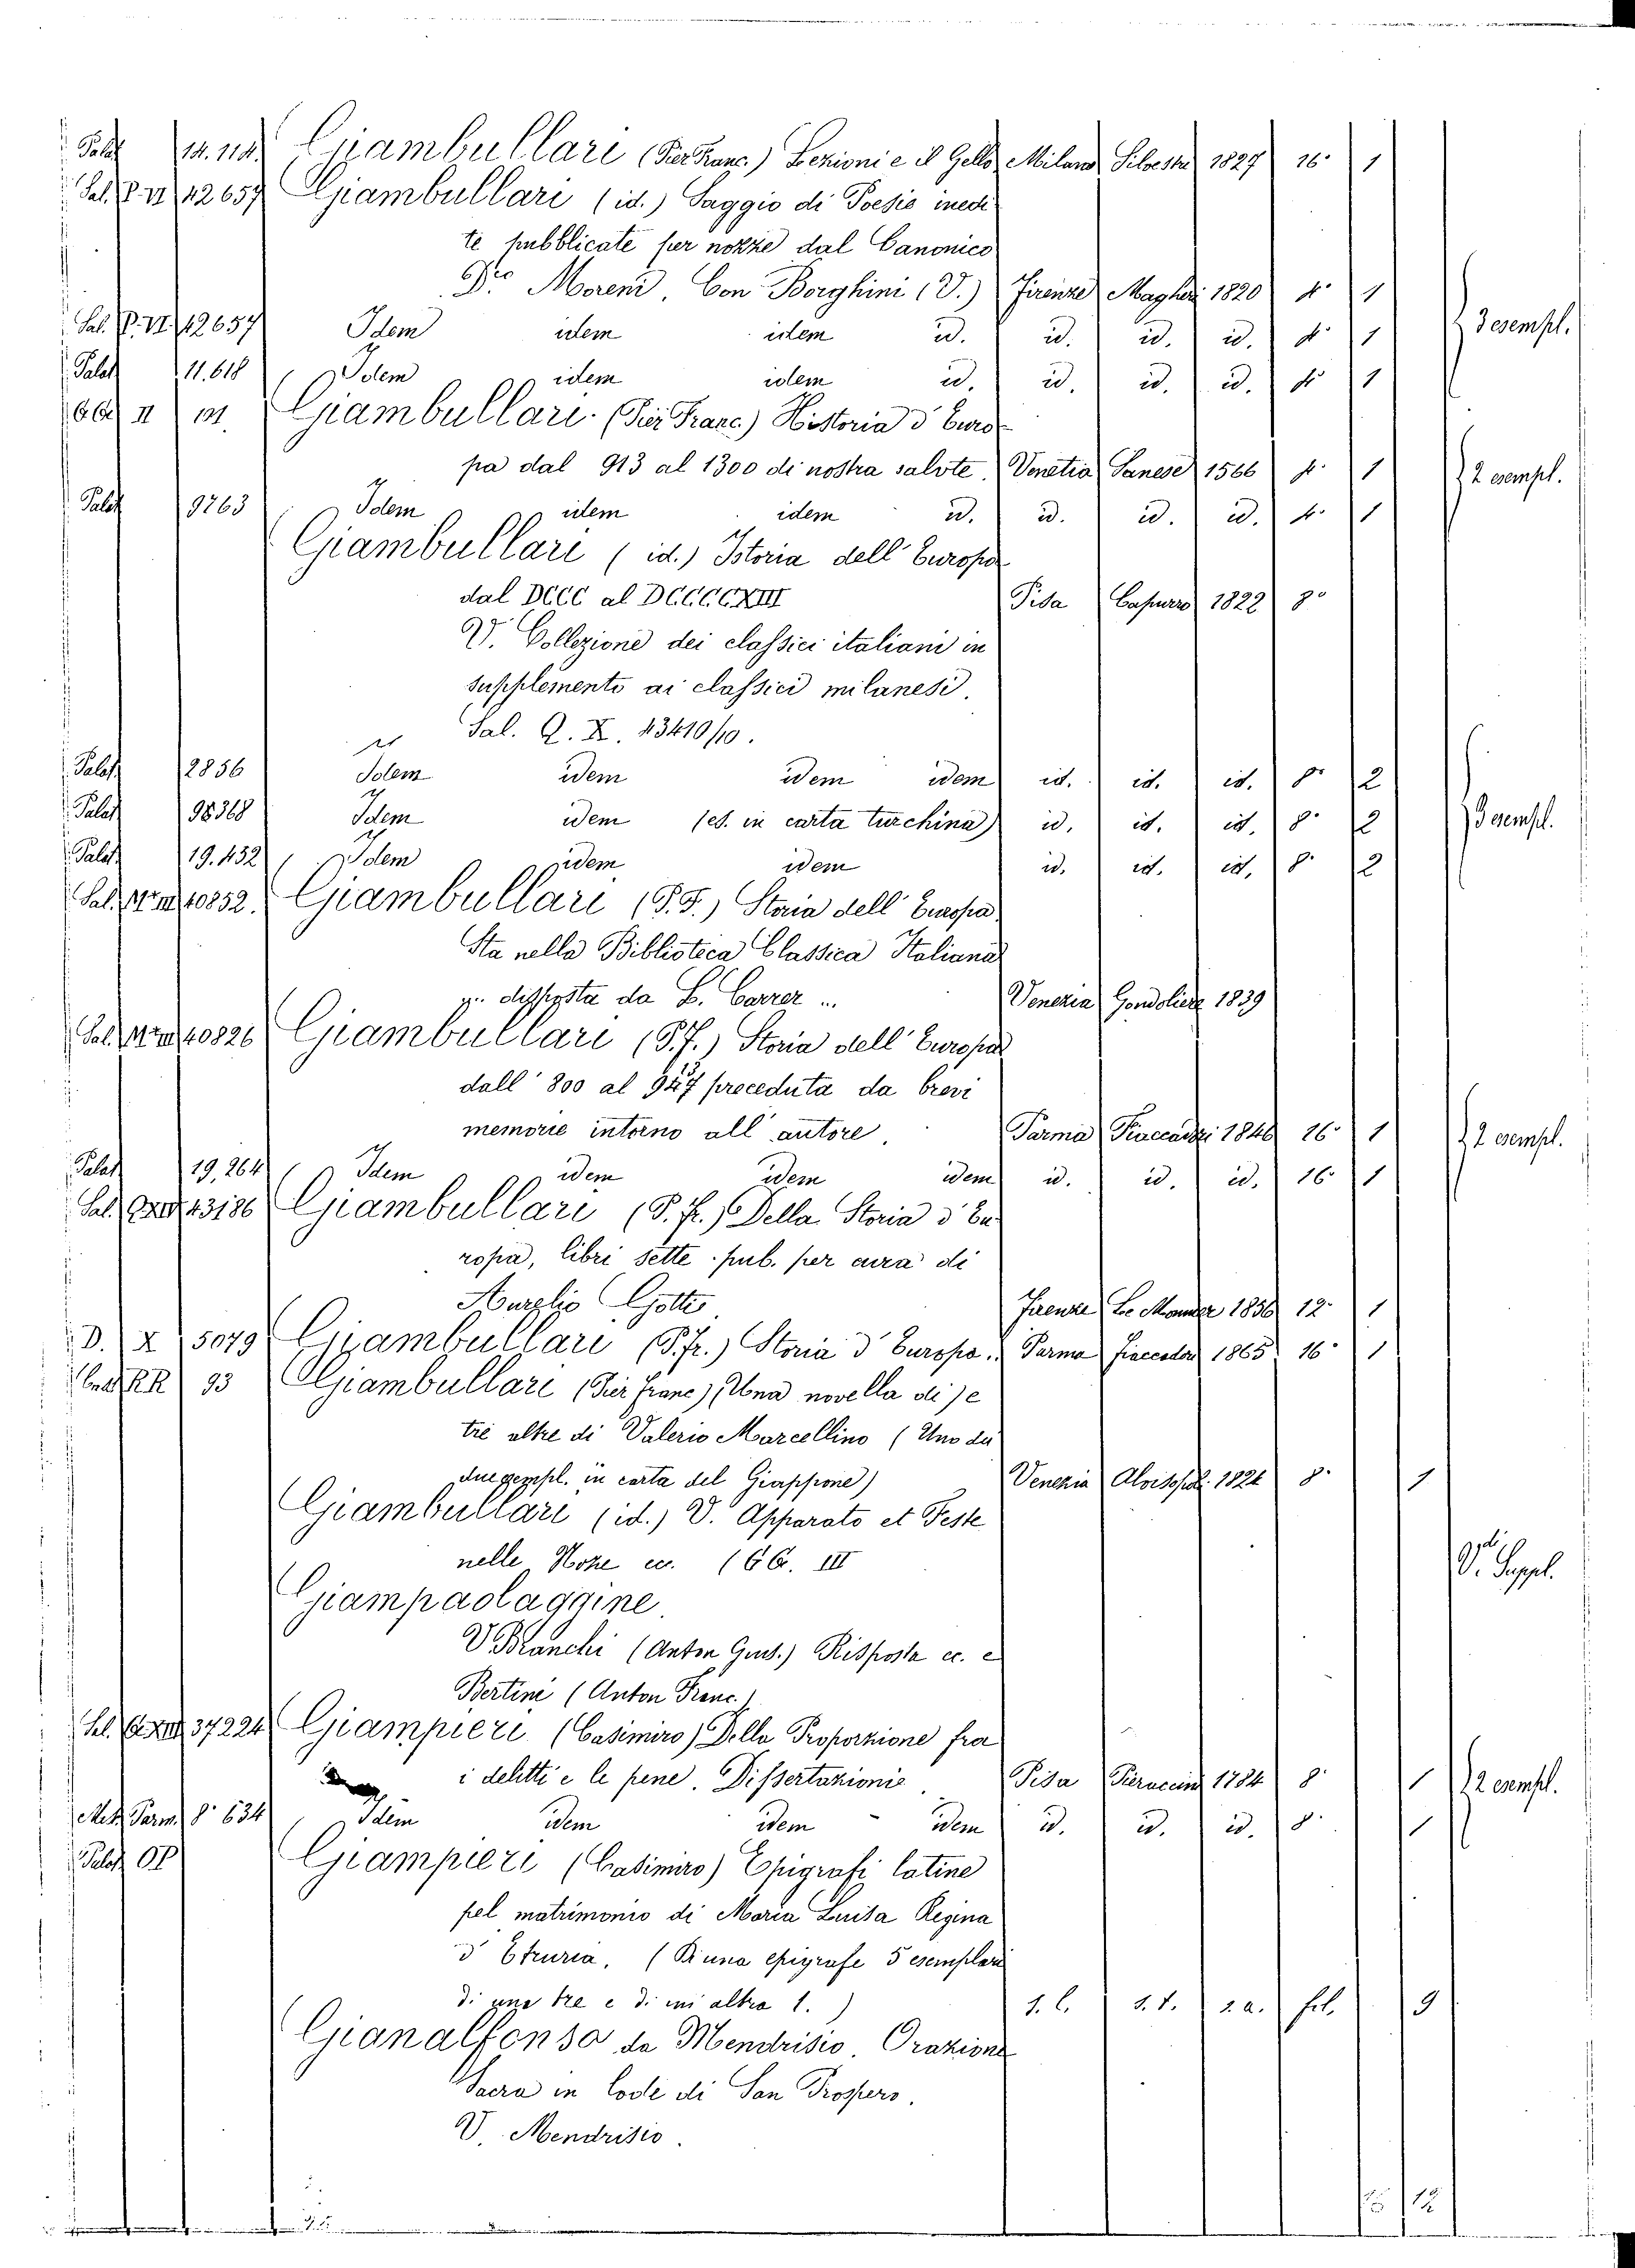 Palat 14.114. Giambullari (Pier Franc.) Lezioni e il Gello Milano Silvestri 1827 16° 1
Sal. P. VI 42657 Giambullari (id.) Saggio di Poesie inedi
te pubblicate per nozze dal Canonico
Dre Moreni, Con Borghini (V.) Firenze Magheri 1820 4° 1
Sal. P. VI. 42657 Idem idem idem id. id. id. id. 4° 1 3 esempl.
Palat 11.618 Idem idem idem id. id. id. id. 4° 1
II 101. Giambullari (Pier Franc.) Historia d'Euro
pa dal 913 al 1300 di nostra salute. Venetia Sanese 1566 4° 1 2 esempl.
Palat 9763 Idem idem idem id. id. id. id. 4° 1
Giambullari (id.) Istoria dell'Europa
dal DCCC al DCCCCXIII Pisa Capurro 1822 8°
V. Collezione dei classici italiani in
supplemento ai classici milanesi.
Sal. Q. X. 43410/10.
Palat 12856 Idem idem idem idem id. id. id. 8° 2
Palat 98368 Idem idem (es. in carta turchina) id. id. id. 8° 2 3 esempl.
Palat 19.432 Idem idem idem id. id. id. 8° 2
Sal. 40852. Giambullari (P.F.) Storia dell'Europa
Sta nella Biblioteca Classica Italiana
disposta da L. Carrer ... Venezia Gondoliere 1839
Sal. 40826 Giambullari (P.F.) Storia dell'Europa
dall'800 al 947 preceduta da brevi
memorie intorno all'autore. Parma Fiaccadori 1846 16° 1 2 esempl.
Palat 19,264 Idem idem idem idem id. id. id. 16° 1
Sal. 43186 Giambullari (P. fr.) Della Storia d'Eu
ropa, libri sette pub. per cura di
Aurelio Gotti Firenze Le Monnier 1856 12° 1
D. X 5079 Giambullari (P. fr.) Storia d'Europa. Parma Fiaccadori 1865 16° 1
RR 93 Giambullari (Pier Franc.) Una novella di) e
tre altre di Valerio Marcellino (Uno dei
due esempl. in carta del Giappone) Venezia Alvisopoli 1824 8° 1
Giambullari (id.) V. Apparato et Feste
nelle Noze ec. (66. III V. Suppl.
Giampaolaggine
V. Branchi (Anton Gius.) Risposta ec. e
Bertini (Anton Franc.)
Sal. 37224 Giampieri (Casimiro) Della Proporzione fra
i delitti e le pene. Dissertazionie Pisa Pieraccini 1784 8° 1 2 esempl.
Parm. 8° 634 Idem idem idem idem id. id. id. 8° 1
Palat OP Giampieri (Casimiro) Epigrafi latine
pel matrimonio di Maria Luisa Regina
d'Etruria. (Di una epigrafe 5 esemplari
di una tre e di un'altra 1.) s. l. s. t. s. a. fol. 9
Gianalfonso da Mendrisio. Orazione
Sacra in lode di San Prospero.
V. Mendrisio.
12